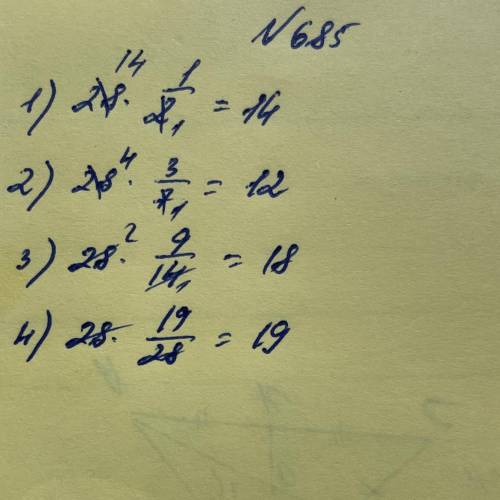 №685
1) 28¹⁴ · 1/2₁ = 14
2) 28⁴ · 3/7₁ = 12
3) 28² · 9/14₁ = 18
4) 28 · 19/28 = 19